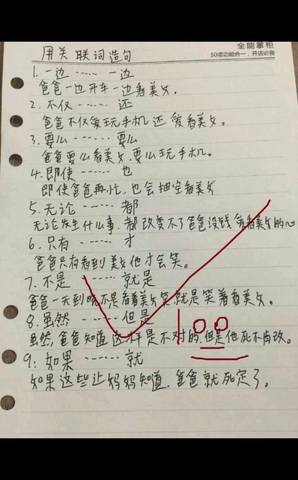 全能掌柜
50项功能合一，开店必备
用关联词造句
1. 一边 …… 一边
爸爸一边开车一边看美女.
2. 不仅 …… 还
爸爸不仅爱玩手机还爱看美女。
3. 要么 …… 要么
爸爸要么看美女,要么玩手机。
4. 即使 …… 也
即使爸爸再忙,也会抽空看美女
5. 无论 …… 都
无论发生什么事,都改变不了爸爸没钱 看美女的心
6. 只有 …… 才
爸爸只有看到美女他才会笑。
7. 不是 …… 就是
爸爸一天到晚不是看着美女笑就是笑着看美女。
8. 虽然 …… 但是
虽然,爸爸知道这样是不对的,但是他死不肯改。
9. 如果 …… 就
如果这些让妈妈知道,爸爸就死定了。
100